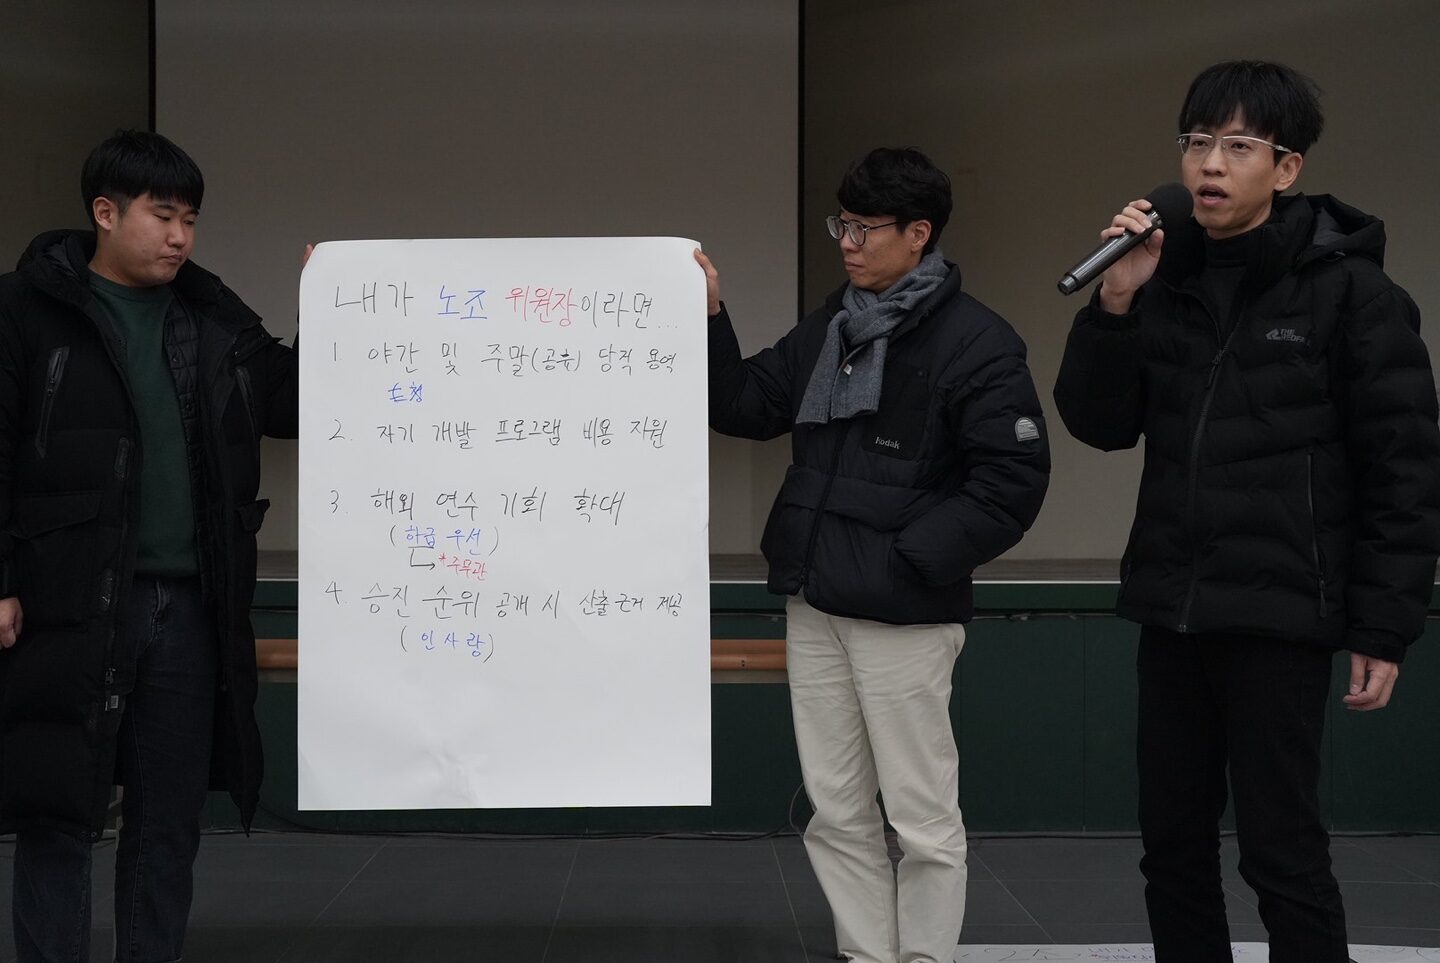 내가 노조 위원장이라면...
1. 야간 및 주말(공휴) 당직 용역
2. 자기 개발 프로그램 비용 지원
3. 해외 연수 기회 확대
(하급 우선)
*주무관
4. 승진 순위 공개 시 산출근거 제공
(인사랑)
Kodak
THE REDFACE